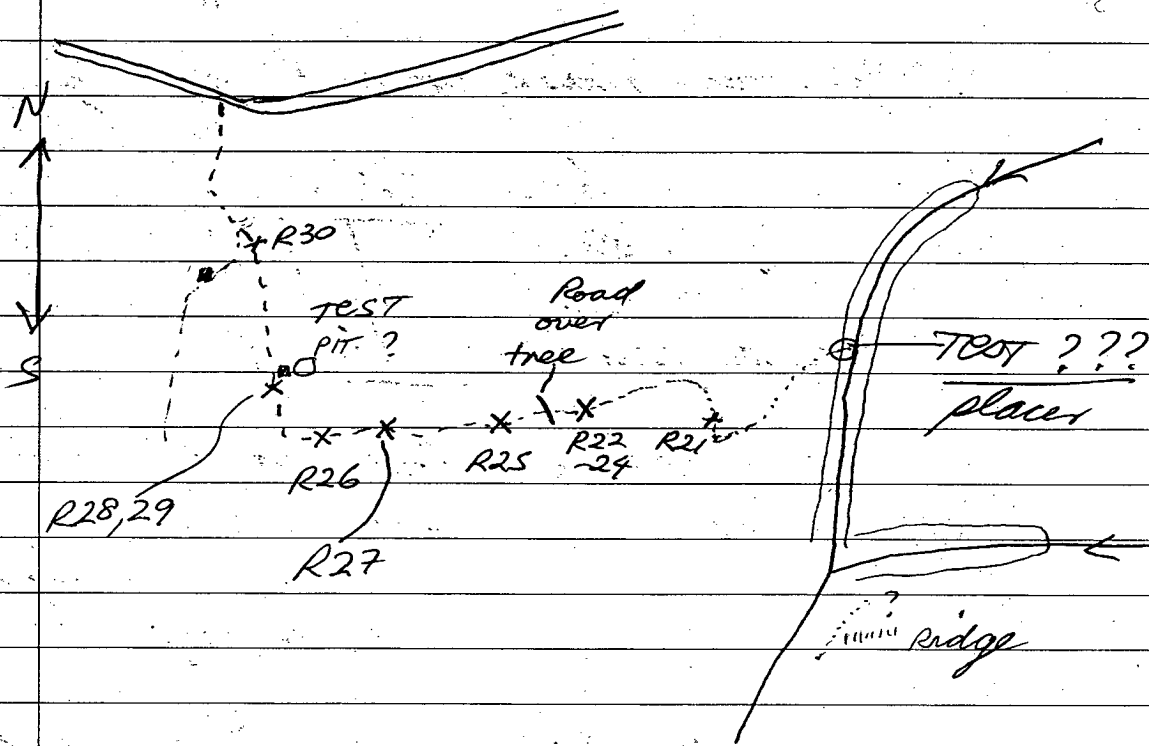 N
S
R30
TEST
PIT ?
Road
over
tree
TEST ???
placer
R22
-24
R21
R25
R26
R28,29
R27
?
Ridge